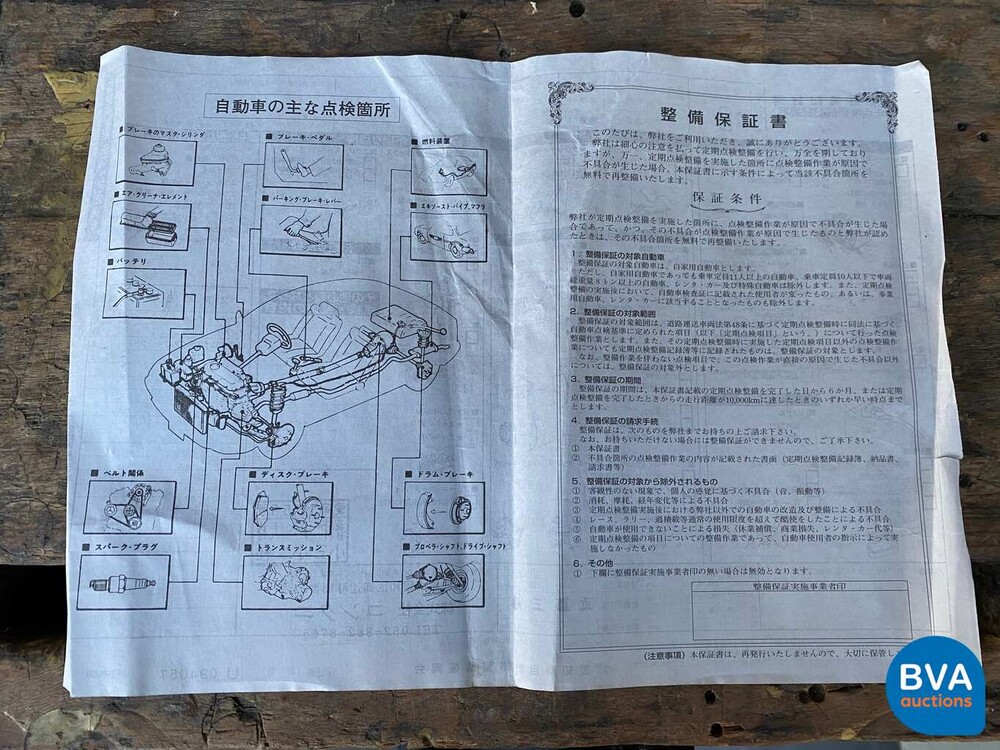 自動車の主な点検箇所
■ ブレーキのマスタ・シリンダ
■ ブレーキ・ペダル
■ 燃料装置
■ エア・クリーナ・エレメント
■ パーキング・ブレーキ・レバー
■ エキゾースト・パイプ、マフラ
■ バッテリ
■ ベルト関係
■ ディスク・ブレーキ
■ ドラム・ブレーキ
■ スパーク・プラグ
■ トランスミッション
■ プロペラ・シャフト、ドライブ・シャフト
整備保証書
このたびは、弊社をご利用いただき、誠にありがとうございます。
弊社は細心の注意を払って定期点検整備を行い、万全を期しており
ますが、万一、定期点検整備を実施した箇所に点検整備作業が原因で
不具合が生じた場合、本保証書に示す条件によって当該不具合箇所を
無料で再整備いたします。
保証条件
弊社が定期点検整備を実施した箇所に、点検整備作業が原因で不具合が生じた場
合であって、かつ、その不具合が点検整備作業が原因で生じたものと弊社が認め
たときは、その不具合箇所を無料で再整備いたします。
1．整備保証の対象自動車
整備保証の対象自動車は、自家用自動車とします。
ただし、自家用自動車であっても乗車定員11人以上の自動車、乗車定員10人以下で車両
総重量８トン以上の自動車、レンタ・カー及び特殊自動車は除外します。また、定期点検
整備の実施後において、自動車検査証に記載された使用者が変ったもの、あるいは、事業
用自動車、レンタ・カーに該当することとなったものも除外します。
2．整備保証の対象範囲
整備保証の対象範囲は、道路運送車両法第48条に基づく定期点検整備時に同法に基づく
自動車点検基準に定められた項目（以下「定期点検項目」という。）について行った点検
整備作業とします。また、その定期点検整備時に実施した定期点検項目以外の点検整備作
業についても定期点検整備記録簿等に記録されたものは、整備保証の対象とします。
なお、整備作業を伴わない点検項目で、この点検作業が直接の原因で生じた不具合以外
については、整備保証の対象外とします。
3．整備保証の期間
整備保証の期間は、本保証書記載の定期点検整備を完了した日から６か月、または定期
点検整備を完了したときからの走行距離が10,000kmに達したときのいずれか早い時点まで
とします。
4．整備保証の請求手続
整備保証は、次のものを弊社までお持ちの上ご請求下さい。
なお、お持ちいただけない場合には整備保証ができませんので、ご了承下さい。
① 本保証書
② 不具合箇所の点検整備作業の内容が記載された書面（定期点検整備記録簿、納品書、
請求書等）
5．整備保証の対象から除外されるもの
① 客観性のない現象で、個人の感覚に基づく不具合（音、振動等）
② 消耗、摩耗、経年変化等による不具合
③ 定期点検整備実施後における弊社以外での自動車の改造及び整備による不具合
④ レース、ラリー、過積載等通常の使用限度を超えて酷使をしたことによる不具合
⑤ 自動車が使用できないことによる損失（休業補償、商業損失、レンタ・カー代等）
⑥ 定期点検整備の項目についての整備作業であって、自動車使用者の指示によって実
施しなかったもの
6．その他
① 下欄に整備保証実施事業者印の無い場合は無効となります。
整備保証実施事業者印
（注意事項）本保証書は、再発行いたしませんので、大切に保管し
BVA
auctions